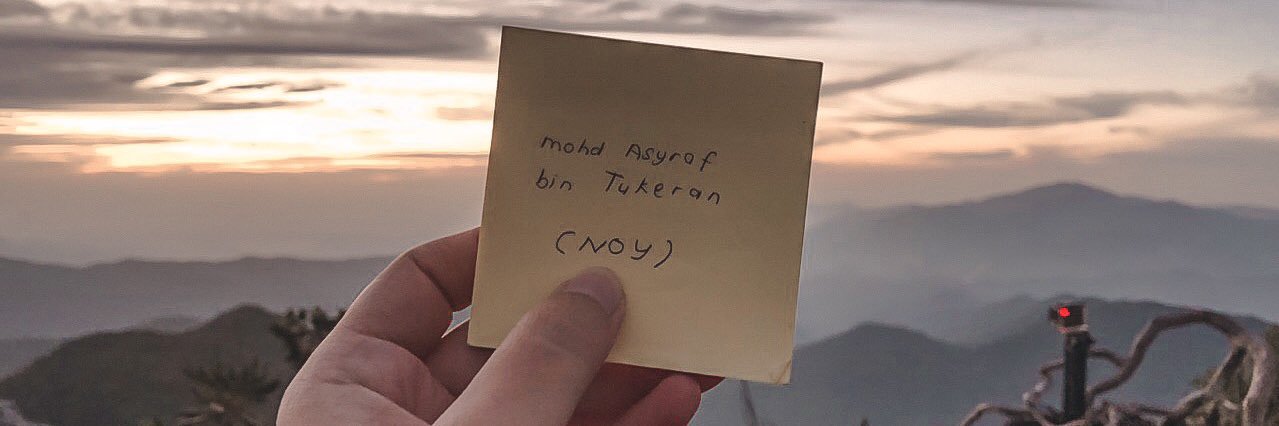 mohd Asyraf
bin Tukeran
(NOY)